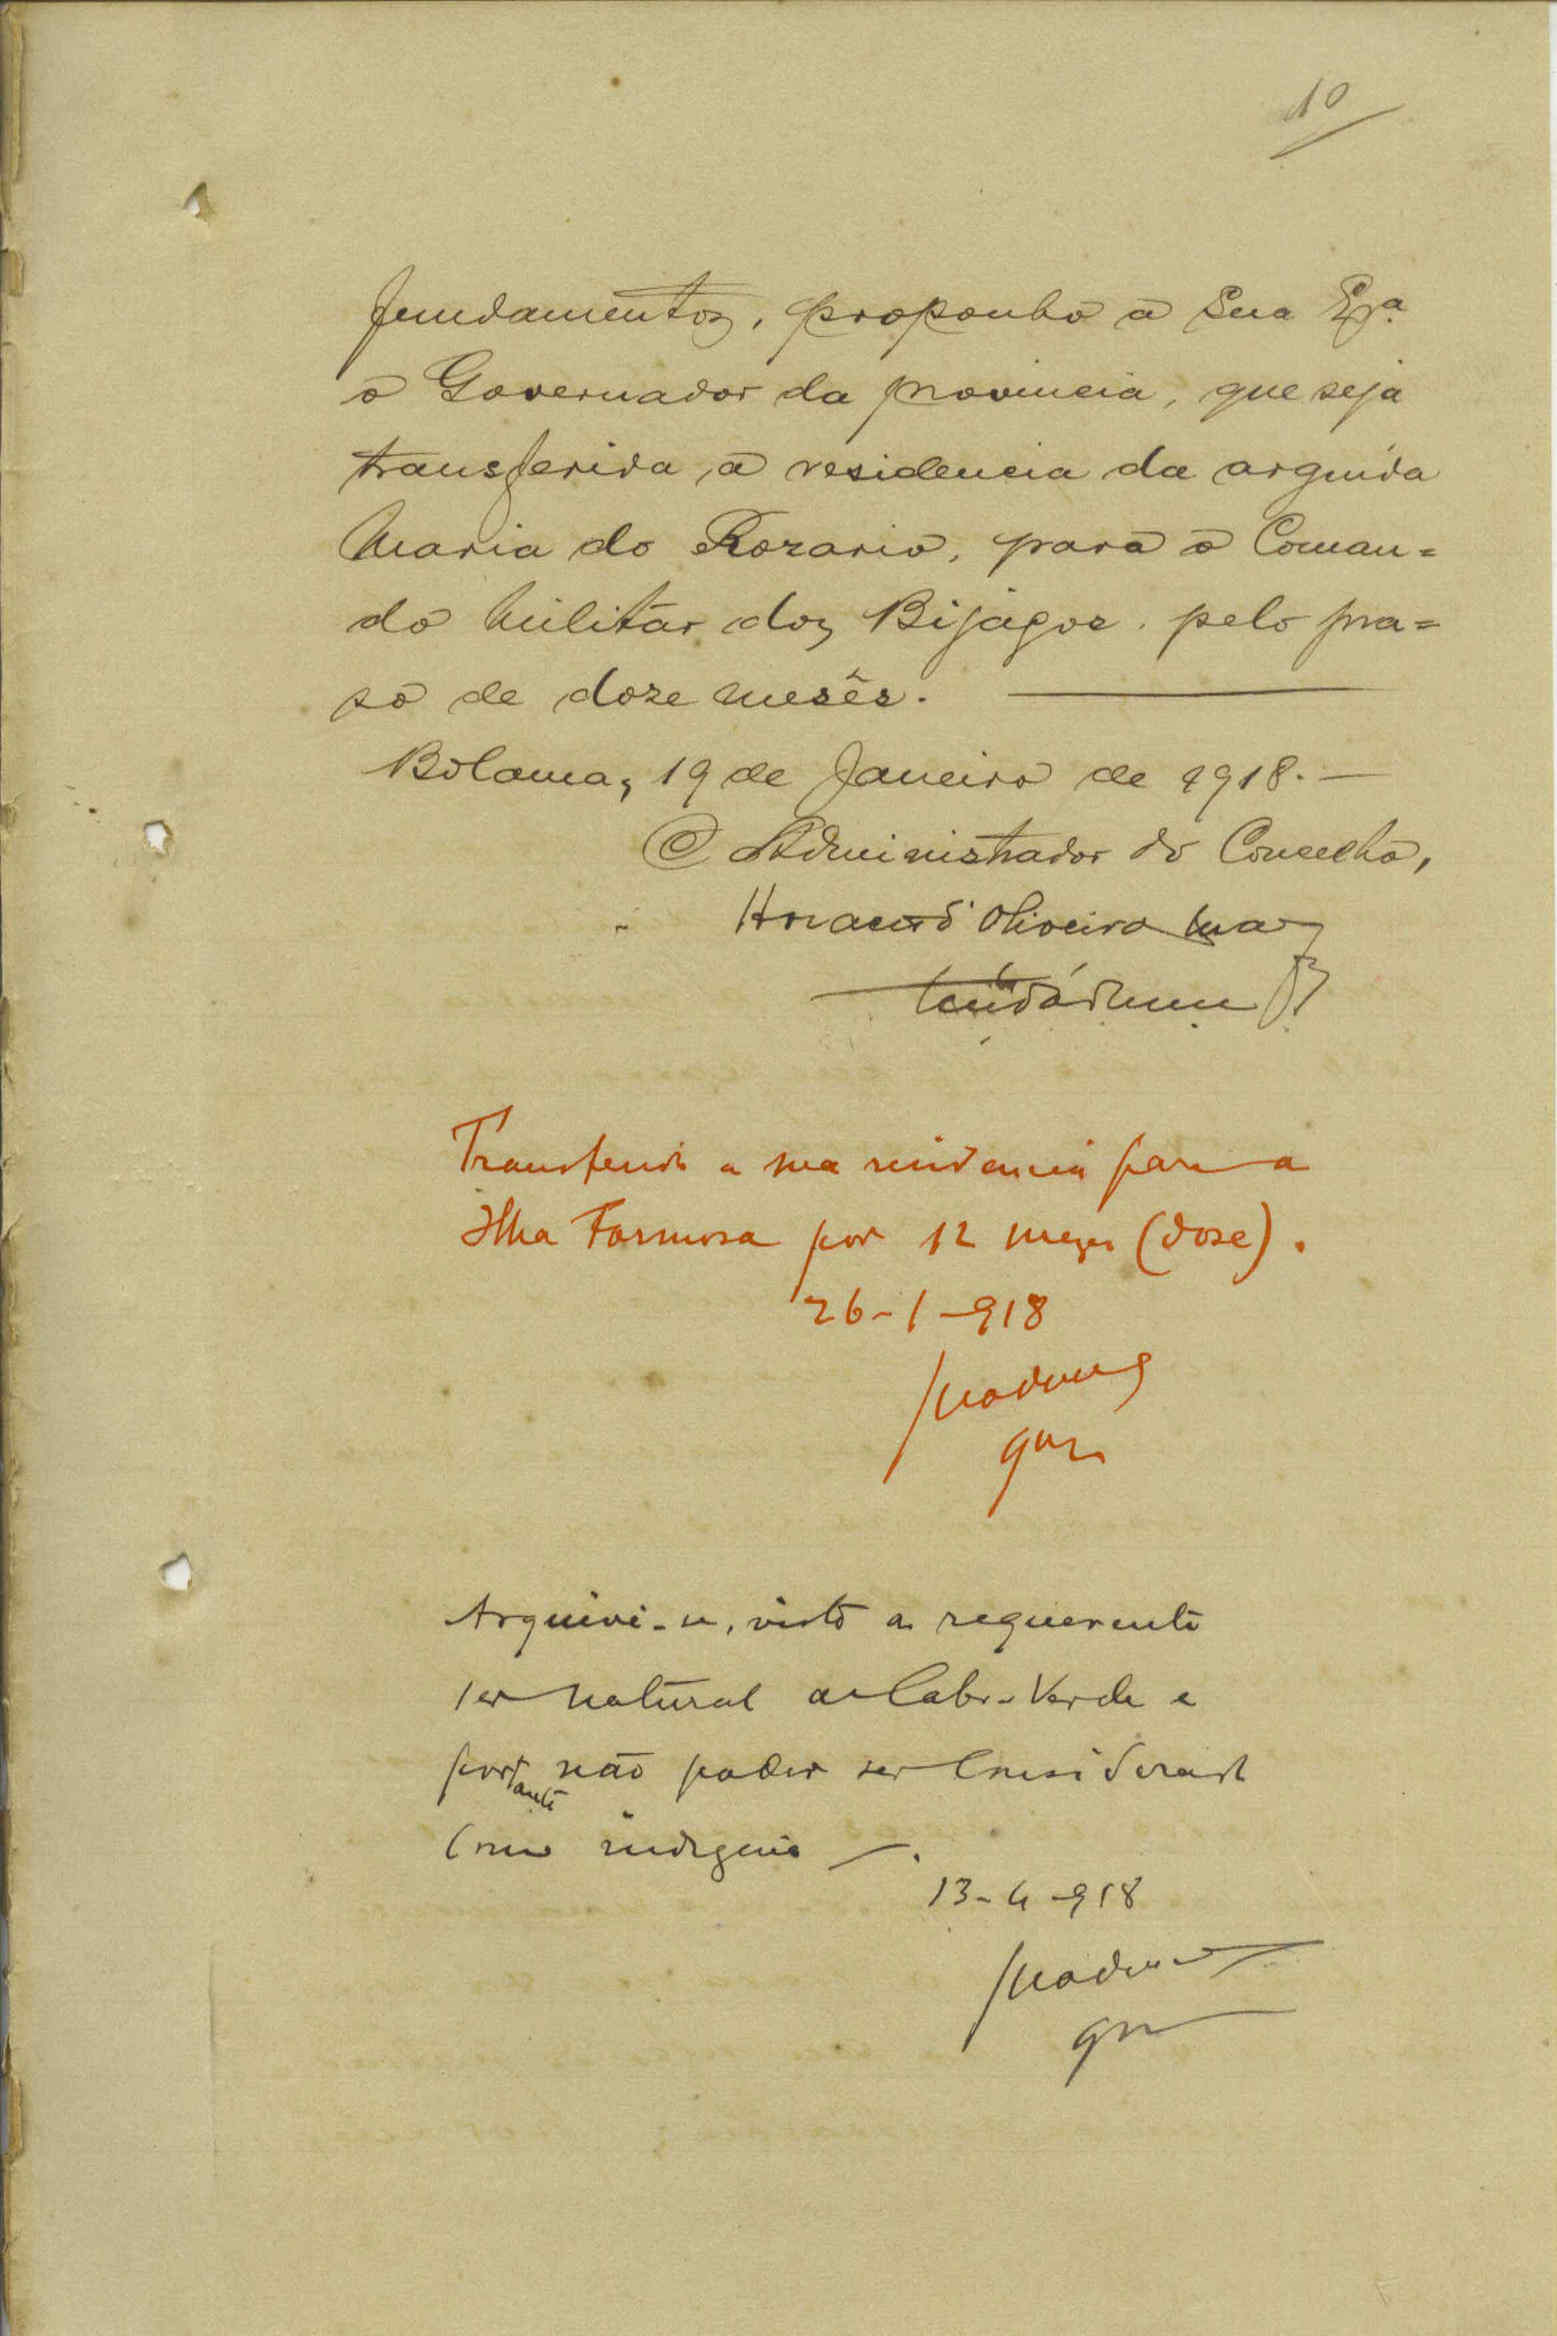 10
fundamentos, proponho a Sua Exª
o Governador da provincia, que seja
transferida a residencia da arguida
Maria do Rozario, para o Coman=
do Militar dos Bijagos. pelo pra=
so de doze mesês.
Bolama, 19 de Janeiro de 1918.—
O Administrador do Concelho,
Oliveira
Transferida a sua residencia para a
Ilha Formosa por 12 mezes (dose).
26-1-918
Arquive-se, visto a requerente
ser natural de Cabo-Verde e
portanto não poder ser considerada
como indigena —.
13-4-918